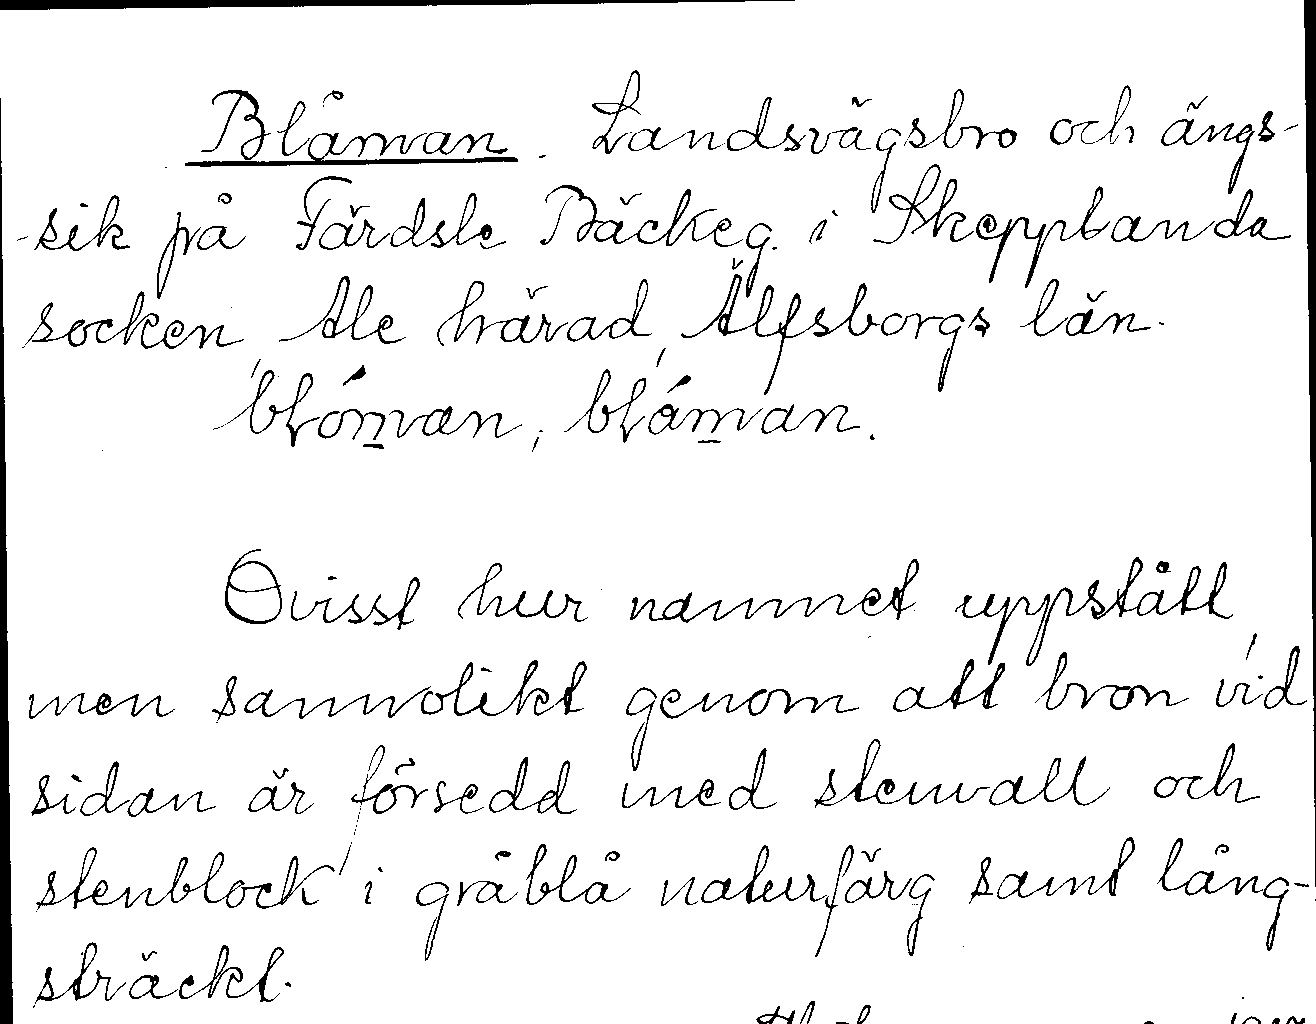 Blåman. Landsvägsbro och ängs-
-sik på Färdsle Bäckeg. i Skepplanda
socken, Ale härad, Älfsborgs län.
blóman, bláman.
Ovisst hur namnet uppstått,
men sannolikt genom att bron vid
sidan är försedd med stenvall och
stenblock i gråblå naturfärg samt lång-
sträckt.